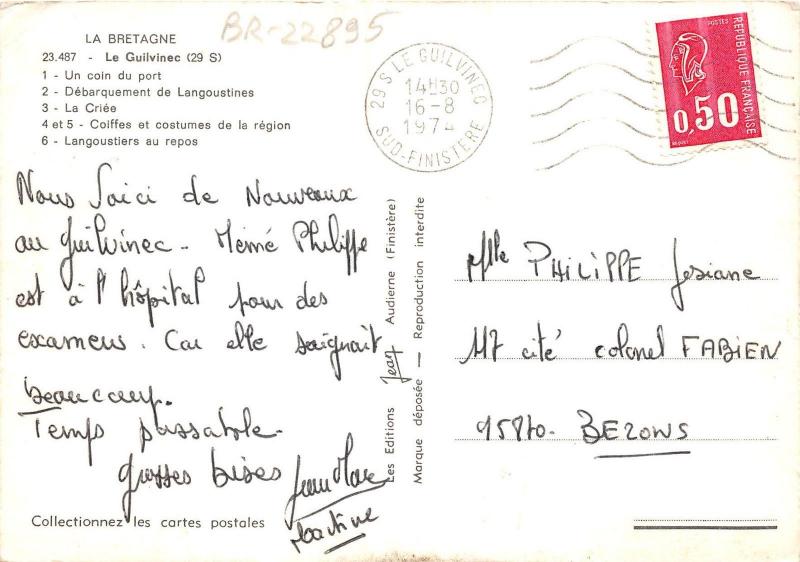 BR-22895
LA BRETAGNE
23.487 - Le Guilvinec (29 S)
1 - Un coin du port
2 - Débarquement de Langoustines
3 - La Criée
4 et 5 - Coiffes et costumes de la région
6 - Langoustiers au repos
29 S LE GUILVINEC
14H30
16-8
1974
SUD-FINISTERE
POSTES
REPUBLIQUE FRANÇAISE
0,50
BEQUET
Nous Voici de Nouveaux
au Guilvinec - Mémé Philippe
est à l'hôpital pour des
examens. Car elle saignait
beaucoup.
Temps passable.
grosses bises Jean Marc
Martine
Collectionnez les cartes postales
Les Editions Jean Audierne (Finistère)
Marque déposée — Reproduction interdite
Mlle PHILIPPE Josiane
117 cité colonel FABIEN
95870. BEZONS